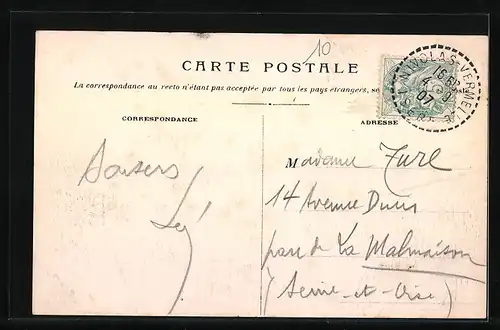 10
CARTE POSTALE
La correspondance au recto n'étant pas acceptée par tous les pays étrangers, se
CORRESPONDANCE
ADRESSE
NICOLAS-VERMELLE
16
07
ISERE
Madame
14 Avenue
parc de La Malmaison
(Seine-et-Oise)